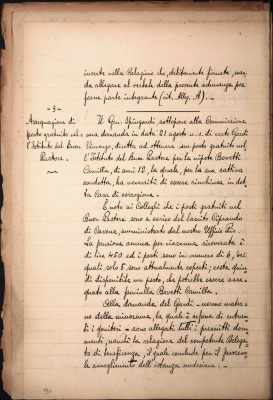 inserte nella Relazione che, debitamente firmata, ver-
rà allegata al verbale della presente adunanza per
farne parte integrante (vib. Alleg. A). —
- 3 -
Assegnazione di
posto gratuito nel-
l'Istituto del Buon
Pastore.
Il Gen. Spingardi sottopone alla Commissione
una domanda in data 21 agosto u. s. di certo Gardi
Vincenzo, diretta ad ottenere un posto gratuito nel-
l'Istituto del Buon Pastore per la nipote Bovetti
Camilla, di anni 12, la quale, per la sua cattiva
condotta, ha necessità di essere rinchiusa in det-
ta Casa di correzione.
È noto ai Colleghi che i posti gratuiti nel
Buon Pastore sono a carico del lascito Ciprando
di Cavour, amministrato dal nostro Ufficio Pio.
La pensione annua per ciascuna ricoverata è
di lire 450 ed i posti sono in numero di 6, dei
quali solo 5 sono attualmente coperti; resta quin-
di disponibile un posto, che potrebbe essere asse-
gnato alla fanciulla Bovetti Camilla. —
Alla domanda del Gardi - nonno mater-
no della minorenne, la quale è orfana di entram-
bi i genitori - sono allegati tutti i prescritti docu-
menti, nonchè la relazione del competente Delega-
to di beneficenza, il quale conclude per il favorevo-
le accoglimento dell'istanza medesima. —